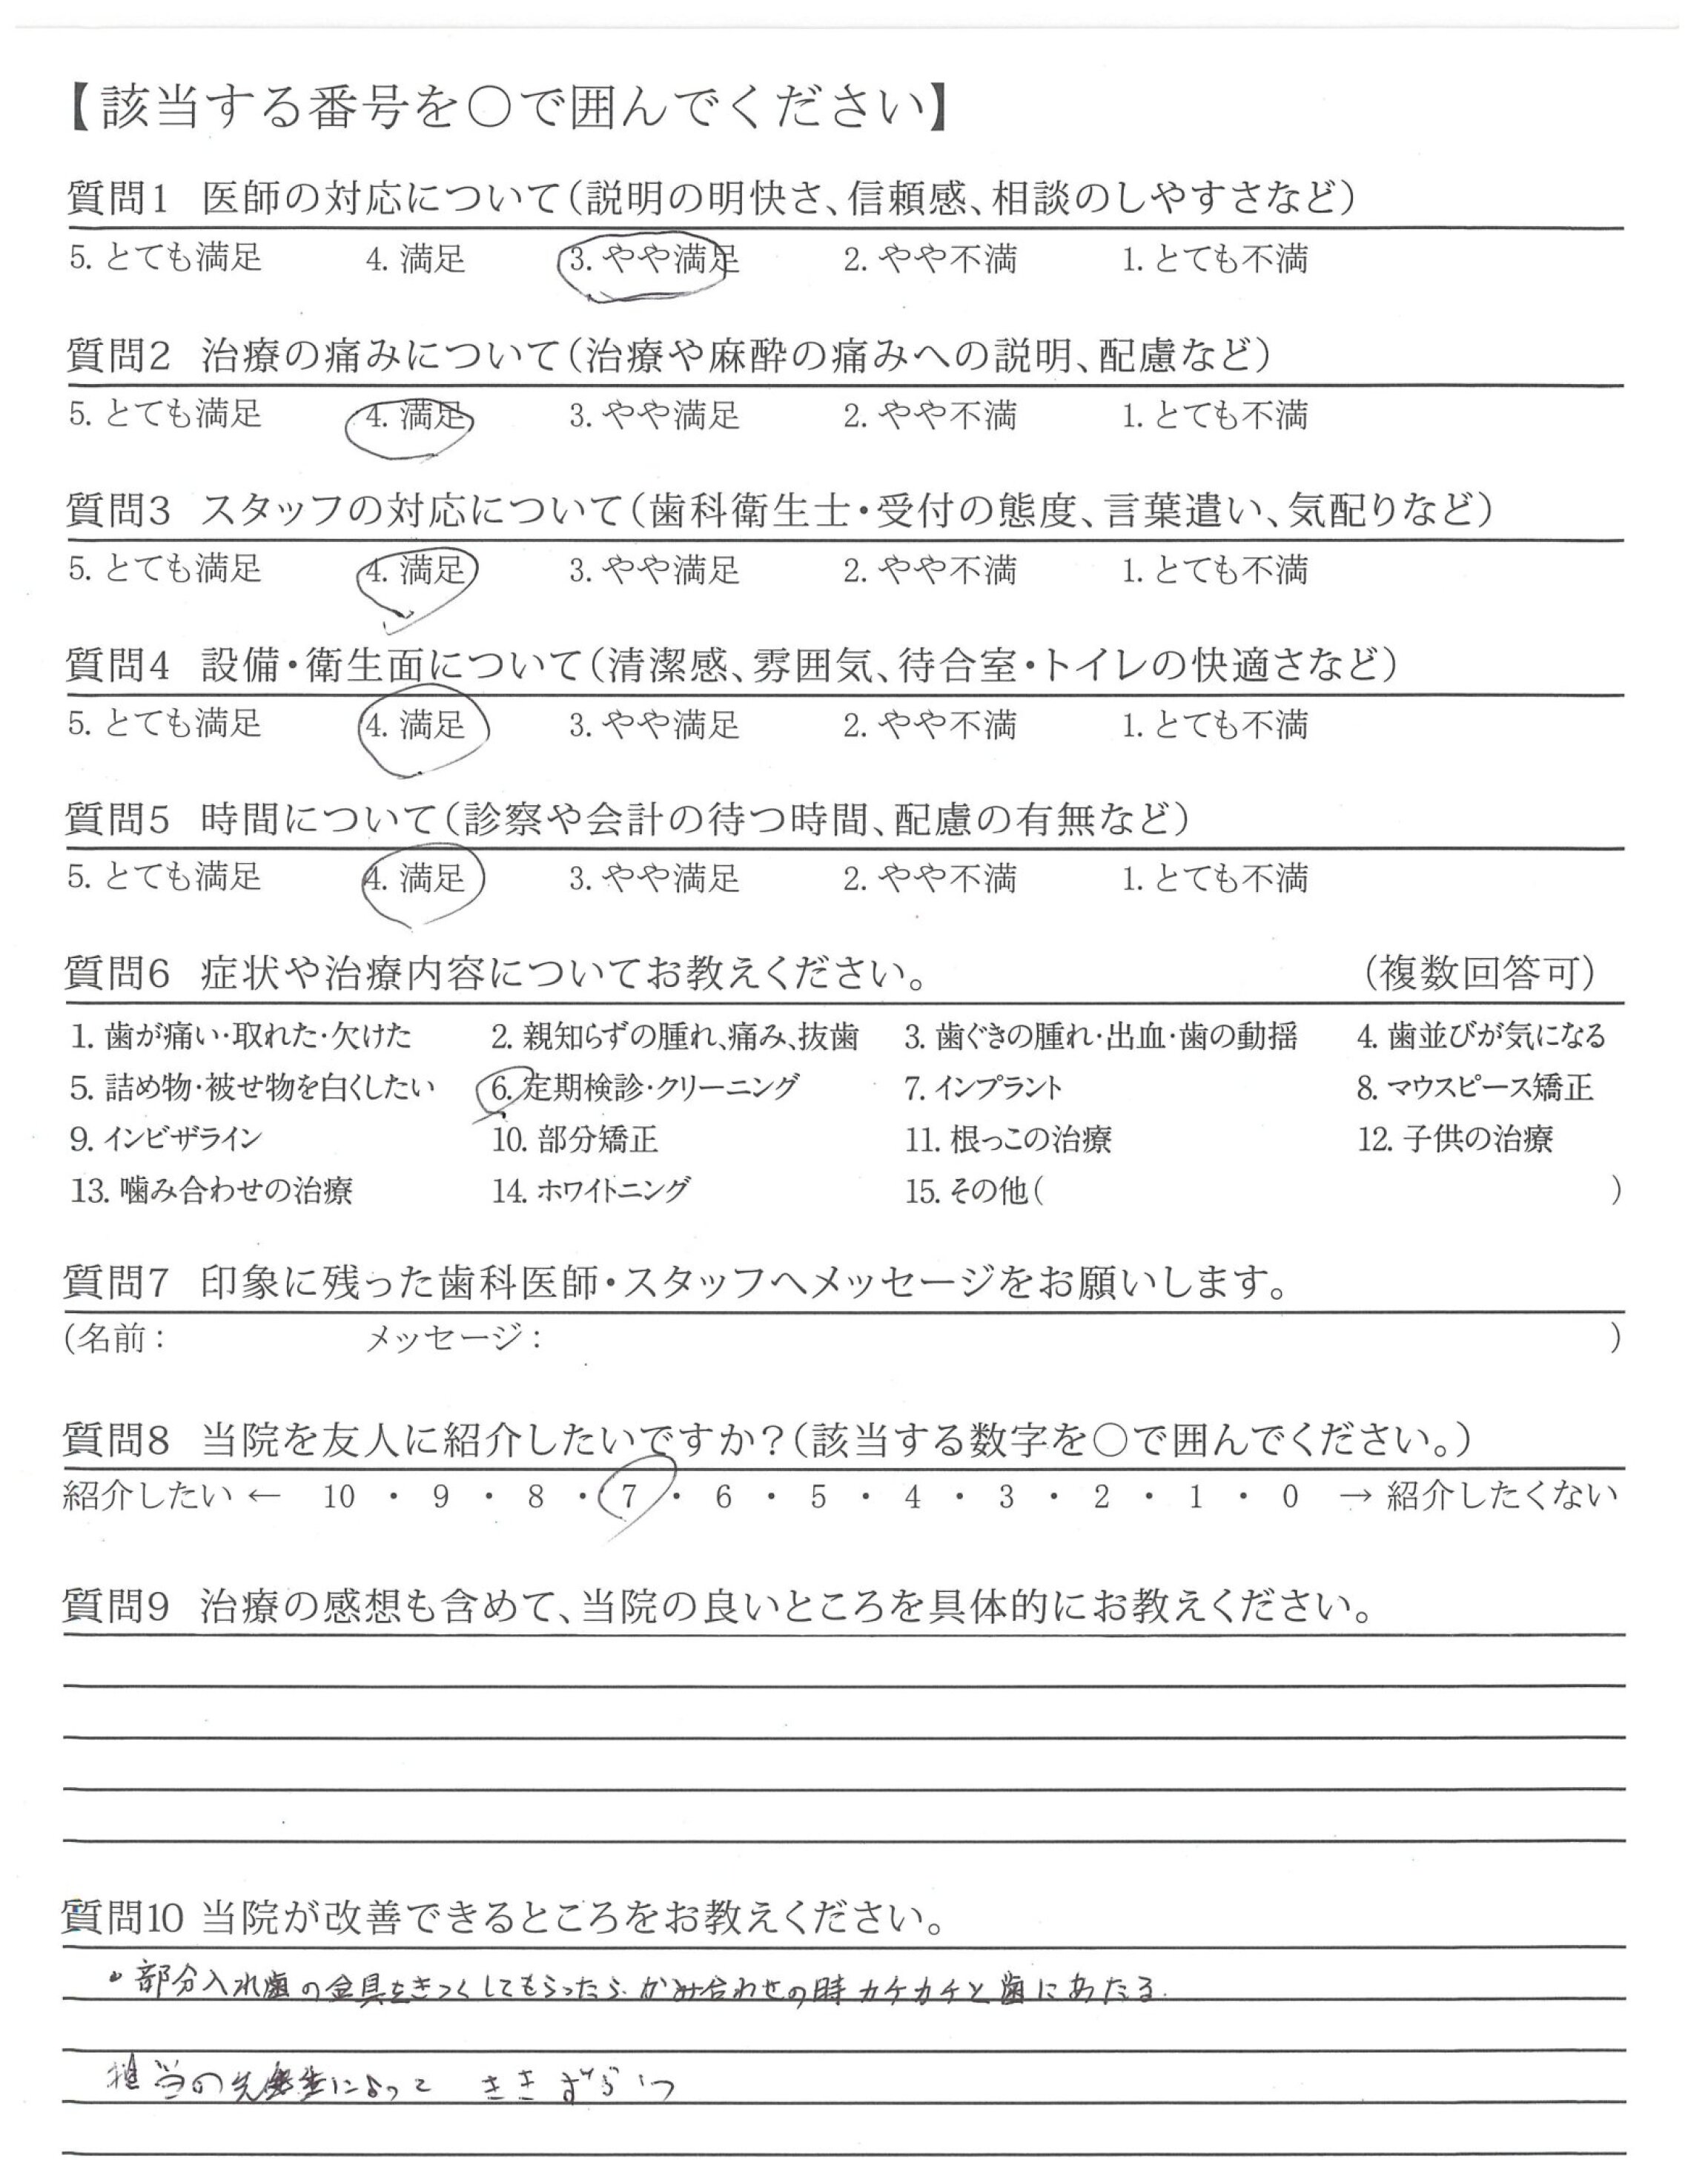 【該当する番号を〇で囲んでください】
質問1 医師の対応について(説明の明快さ、信頼感、相談のしやすさなど)
5. とても満足 4. 満足 3. やや満足 2. やや不満 1. とても不満
質問2 治療の痛みについて(治療や麻酔の痛みへの説明、配慮など)
5. とても満足 4. 満足 3. やや満足 2. やや不満 1. とても不満
質問3 スタッフの対応について(歯科衛生士・受付の態度、言葉遣い、気配りなど)
5. とても満足 4. 満足 3. やや満足 2. やや不満 1. とても不満
質問4 設備・衛生面について(清潔感、雰囲気、待合室・トイレの快適さなど)
5. とても満足 4. 満足 3. やや満足 2. やや不満 1. とても不満
質問5 時間について(診察や会計の待つ時間、配慮の有無など)
5. とても満足 4. 満足 3. やや満足 2. やや不満 1. とても不満
質問6 症状や治療内容についてお教えください。 (複数回答可)
1. 歯が痛い・取れた・欠けた 2. 親知らずの腫れ、痛み、抜歯 3. 歯ぐきの腫れ・出血・歯の動揺 4. 歯並びが気になる
5. 詰め物・被せ物を白くしたい 6. 定期検診・クリーニング 7. インプラント 8. マウスピース矯正
9. インビザライン 10. 部分矯正 11. 根っこの治療 12. 子供の治療
13. 噛み合わせの治療 14. ホワイトニング 15. その他( )
質問7 印象に残った歯科医師・スタッフへメッセージをお願いします。
(名前: メッセージ: )
質問8 当院を友人に紹介したいですか?(該当する数字を〇で囲んでください。)
紹介したい ← 10 ・ 9 ・ 8 ・ 7 ・ 6 ・ 5 ・ 4 ・ 3 ・ 2 ・ 1 ・ 0 → 紹介したくない
質問9 治療の感想も含めて、当院の良いところを具体的にお教えください。
質問10 当院が改善できるところをお教えください。
・部分入れ歯の金具をきつくしてもらったら、かみ合わせの時カチカチと歯にあたる.
担当の先生によって ききずらい